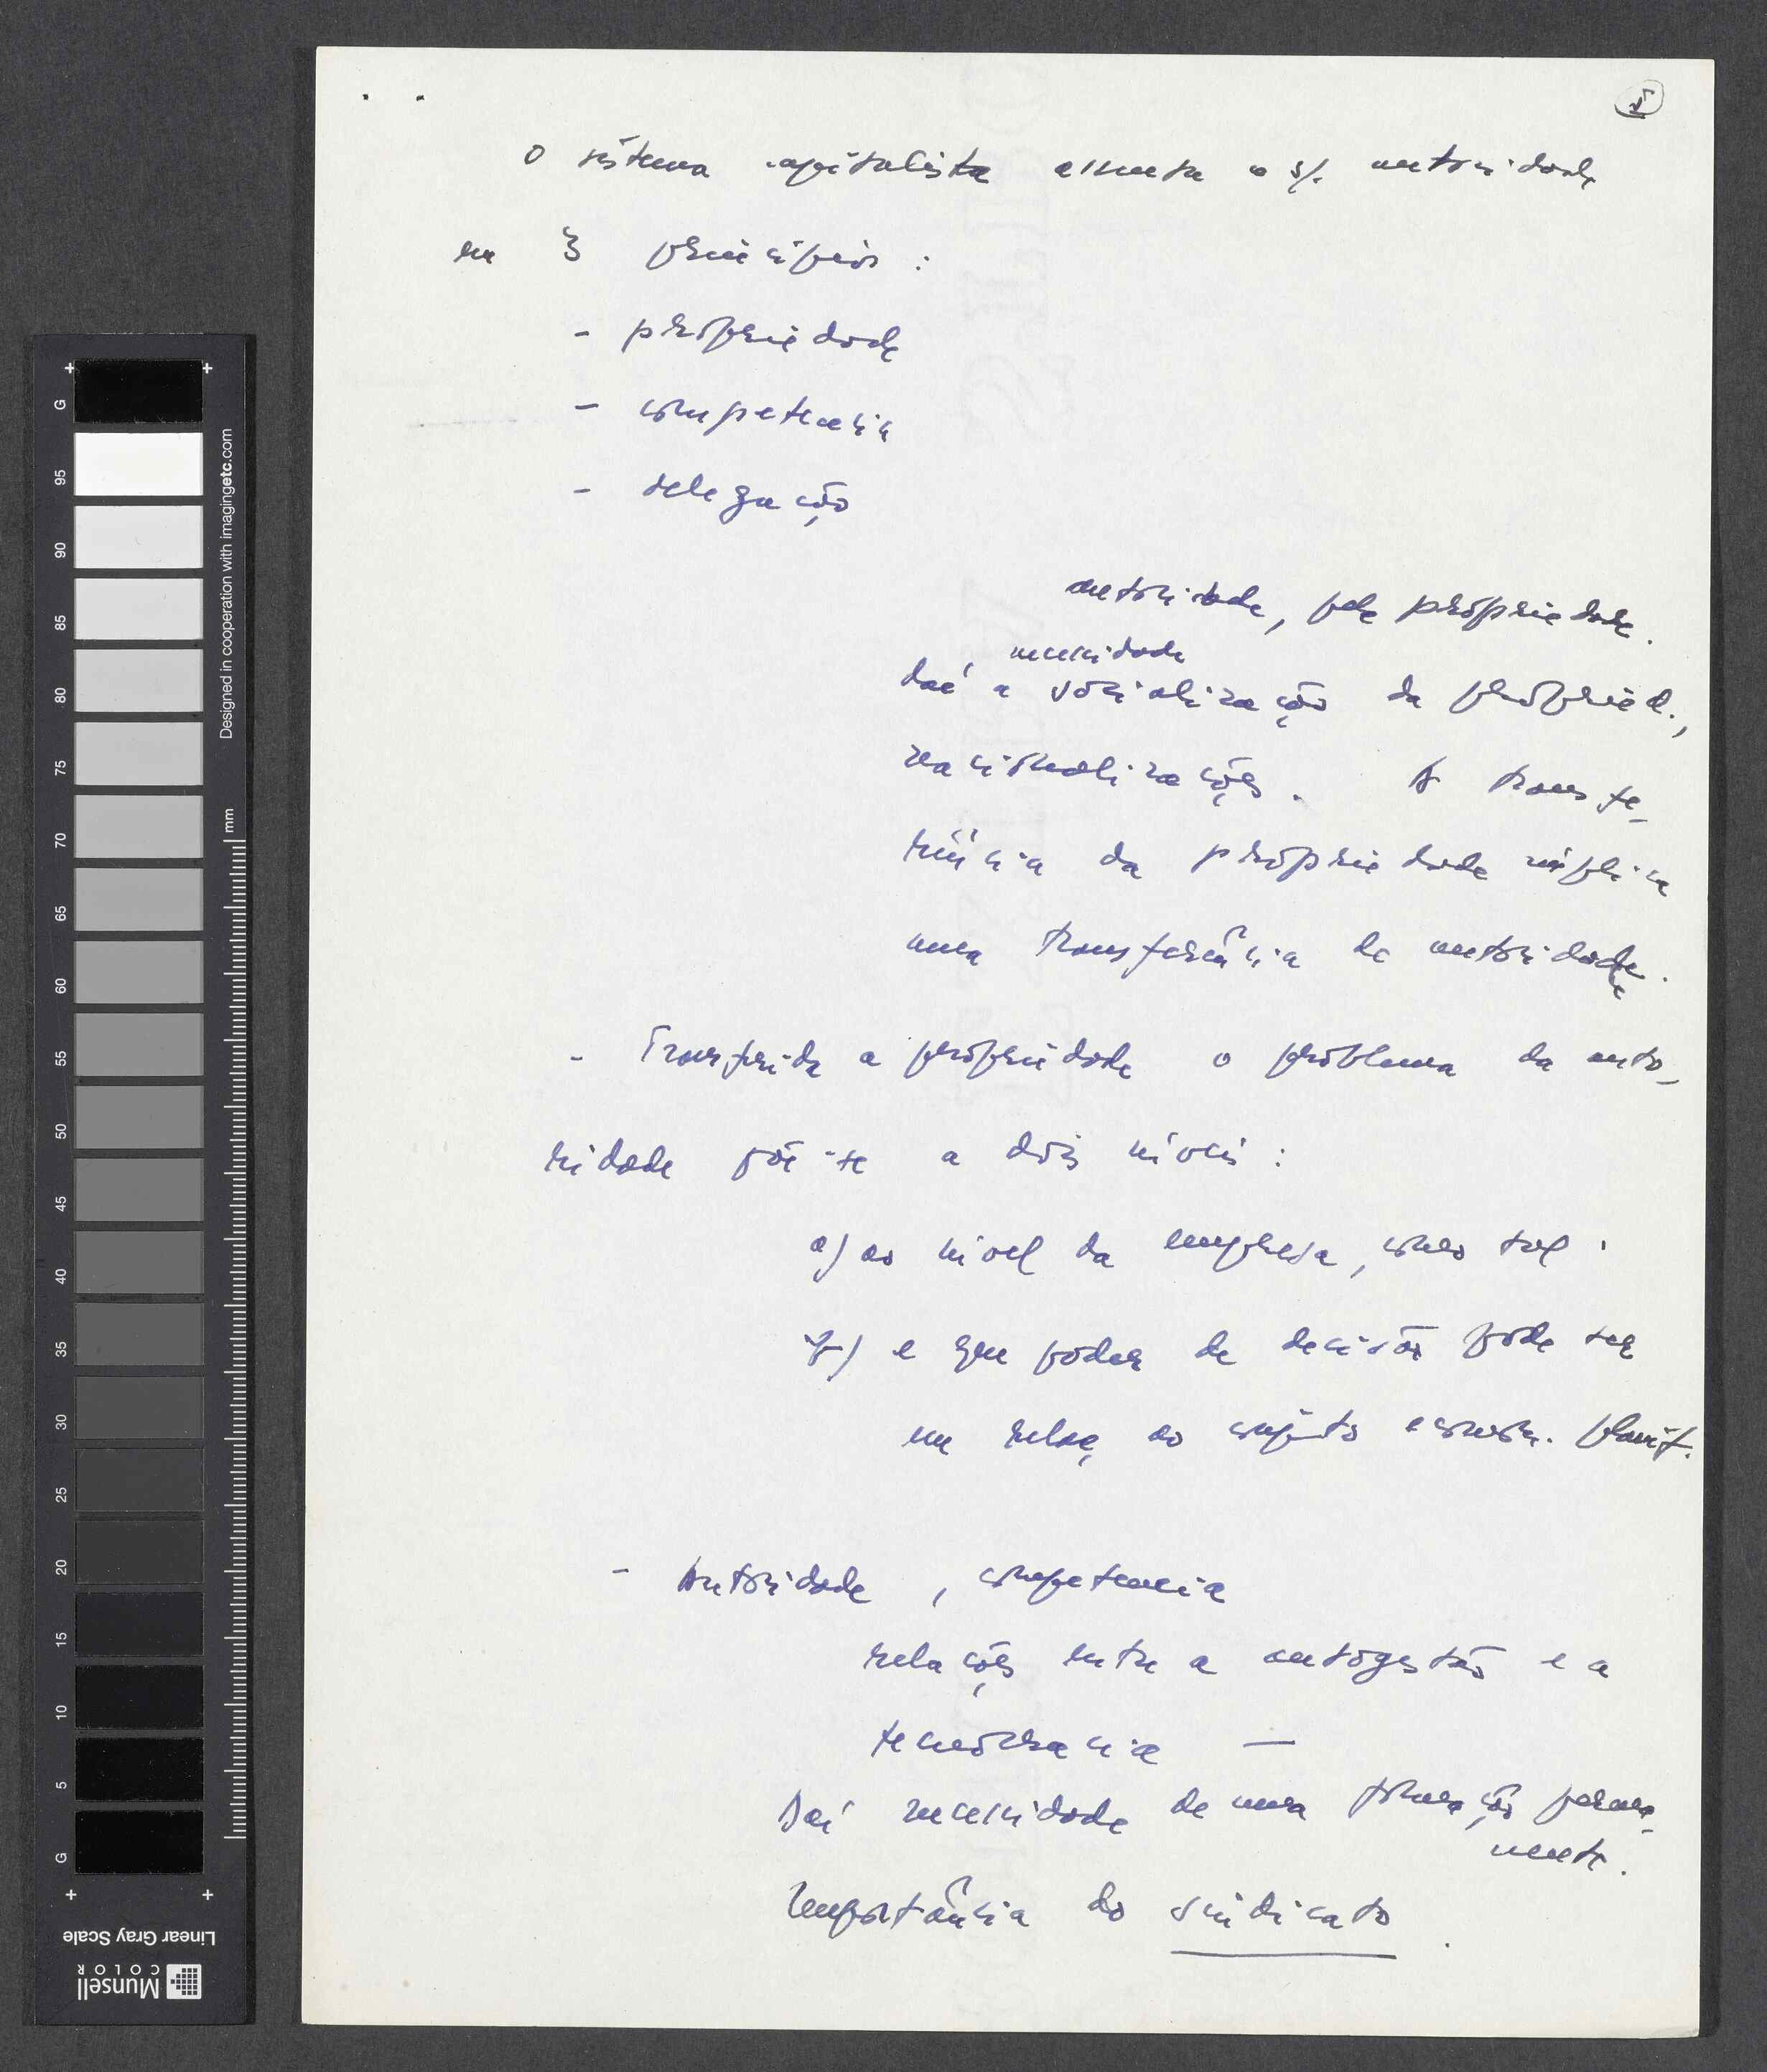 5
O sistema capitalista assenta a s/. autoridade
em 3 princípios :
- propriedade
- competencia
- delegação
autoridade, pela propriedade.
necessidade
daí a socialização da propried.,
nacionalizações. A transfe-
rência da propriedade implica
uma transferência de autoridade.
- Transferida a propriedade o problema da auto-
ridade põe-se a dois níveis :
a) ao nível da empresa, como tal.
b) e que poder de decisão pode ter
em relaç. ao conjunto econom. planif.
- Autoridade , competencia
relações entre a autogestão e a
tecnocracia —
Daí necessidade de uma formação perma-
nente.
Importância do sindicato.
G
95
90
85
80
75
70
65
60
55
50
45
40
35
30
25
20
15
10
5
G
mm
Designed in cooperation with imagingetc.com
Linear Gray Scale
Munsell
COLOR